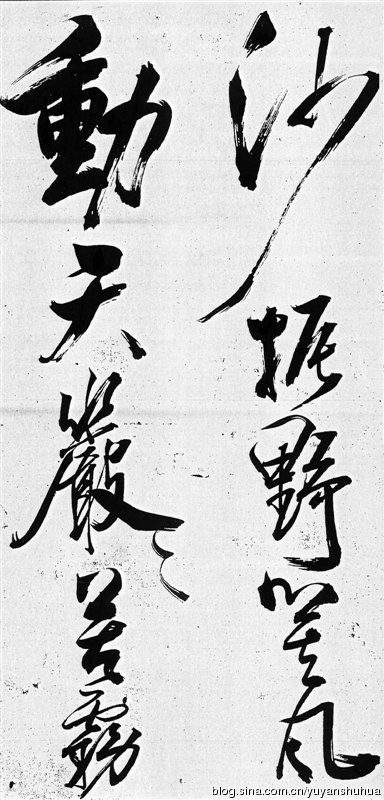 沙振野箕風
動天巖〻苦霧
blog.sina.com.cn/yuyanshuhua